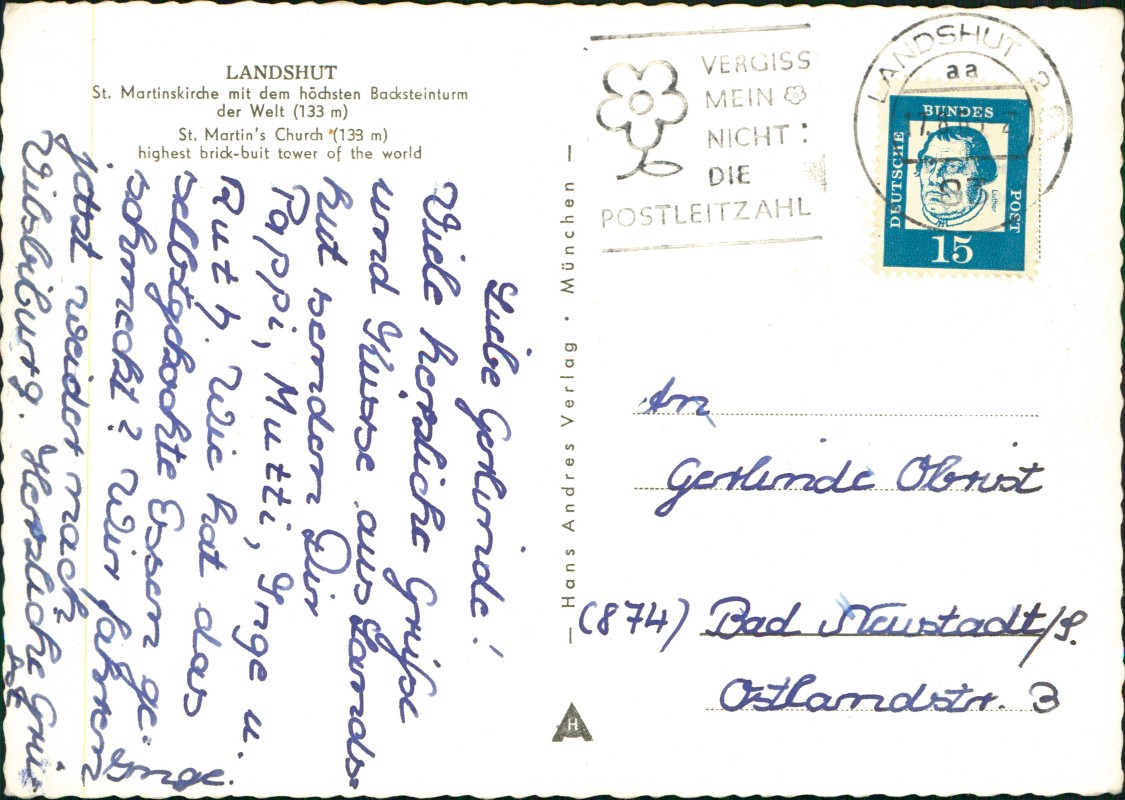 LANDSHUT
St. Martinskirche mit dem höchsten Backsteinturm
der Welt (133 m)
St. Martin's Church (133 m)
highest brick-buit tower of the world
Liebe Gerlinde!
Viele herzliche Grüße
und Küsse aus Lands-
hut senden Dir
Pappi, Mutti, Inge u.
Ruth. Wie hat das
selbstgekochte Essen ge-
schmeckt? Wir fahren
jetzt weiter nach
Vilsbiburg. Herzliche Grü-
ße
Inge.
Hans Andres Verlag · München
H
VERGISS
MEIN
NICHT:
DIE
POSTLEITZAHL
LANDSHUT 2
aa
83
DEUTSCHE
BUNDES
POST
15
An
Gerlinde Obrist
(874) Bad Neustadt/S.
Ostlandstr. 3